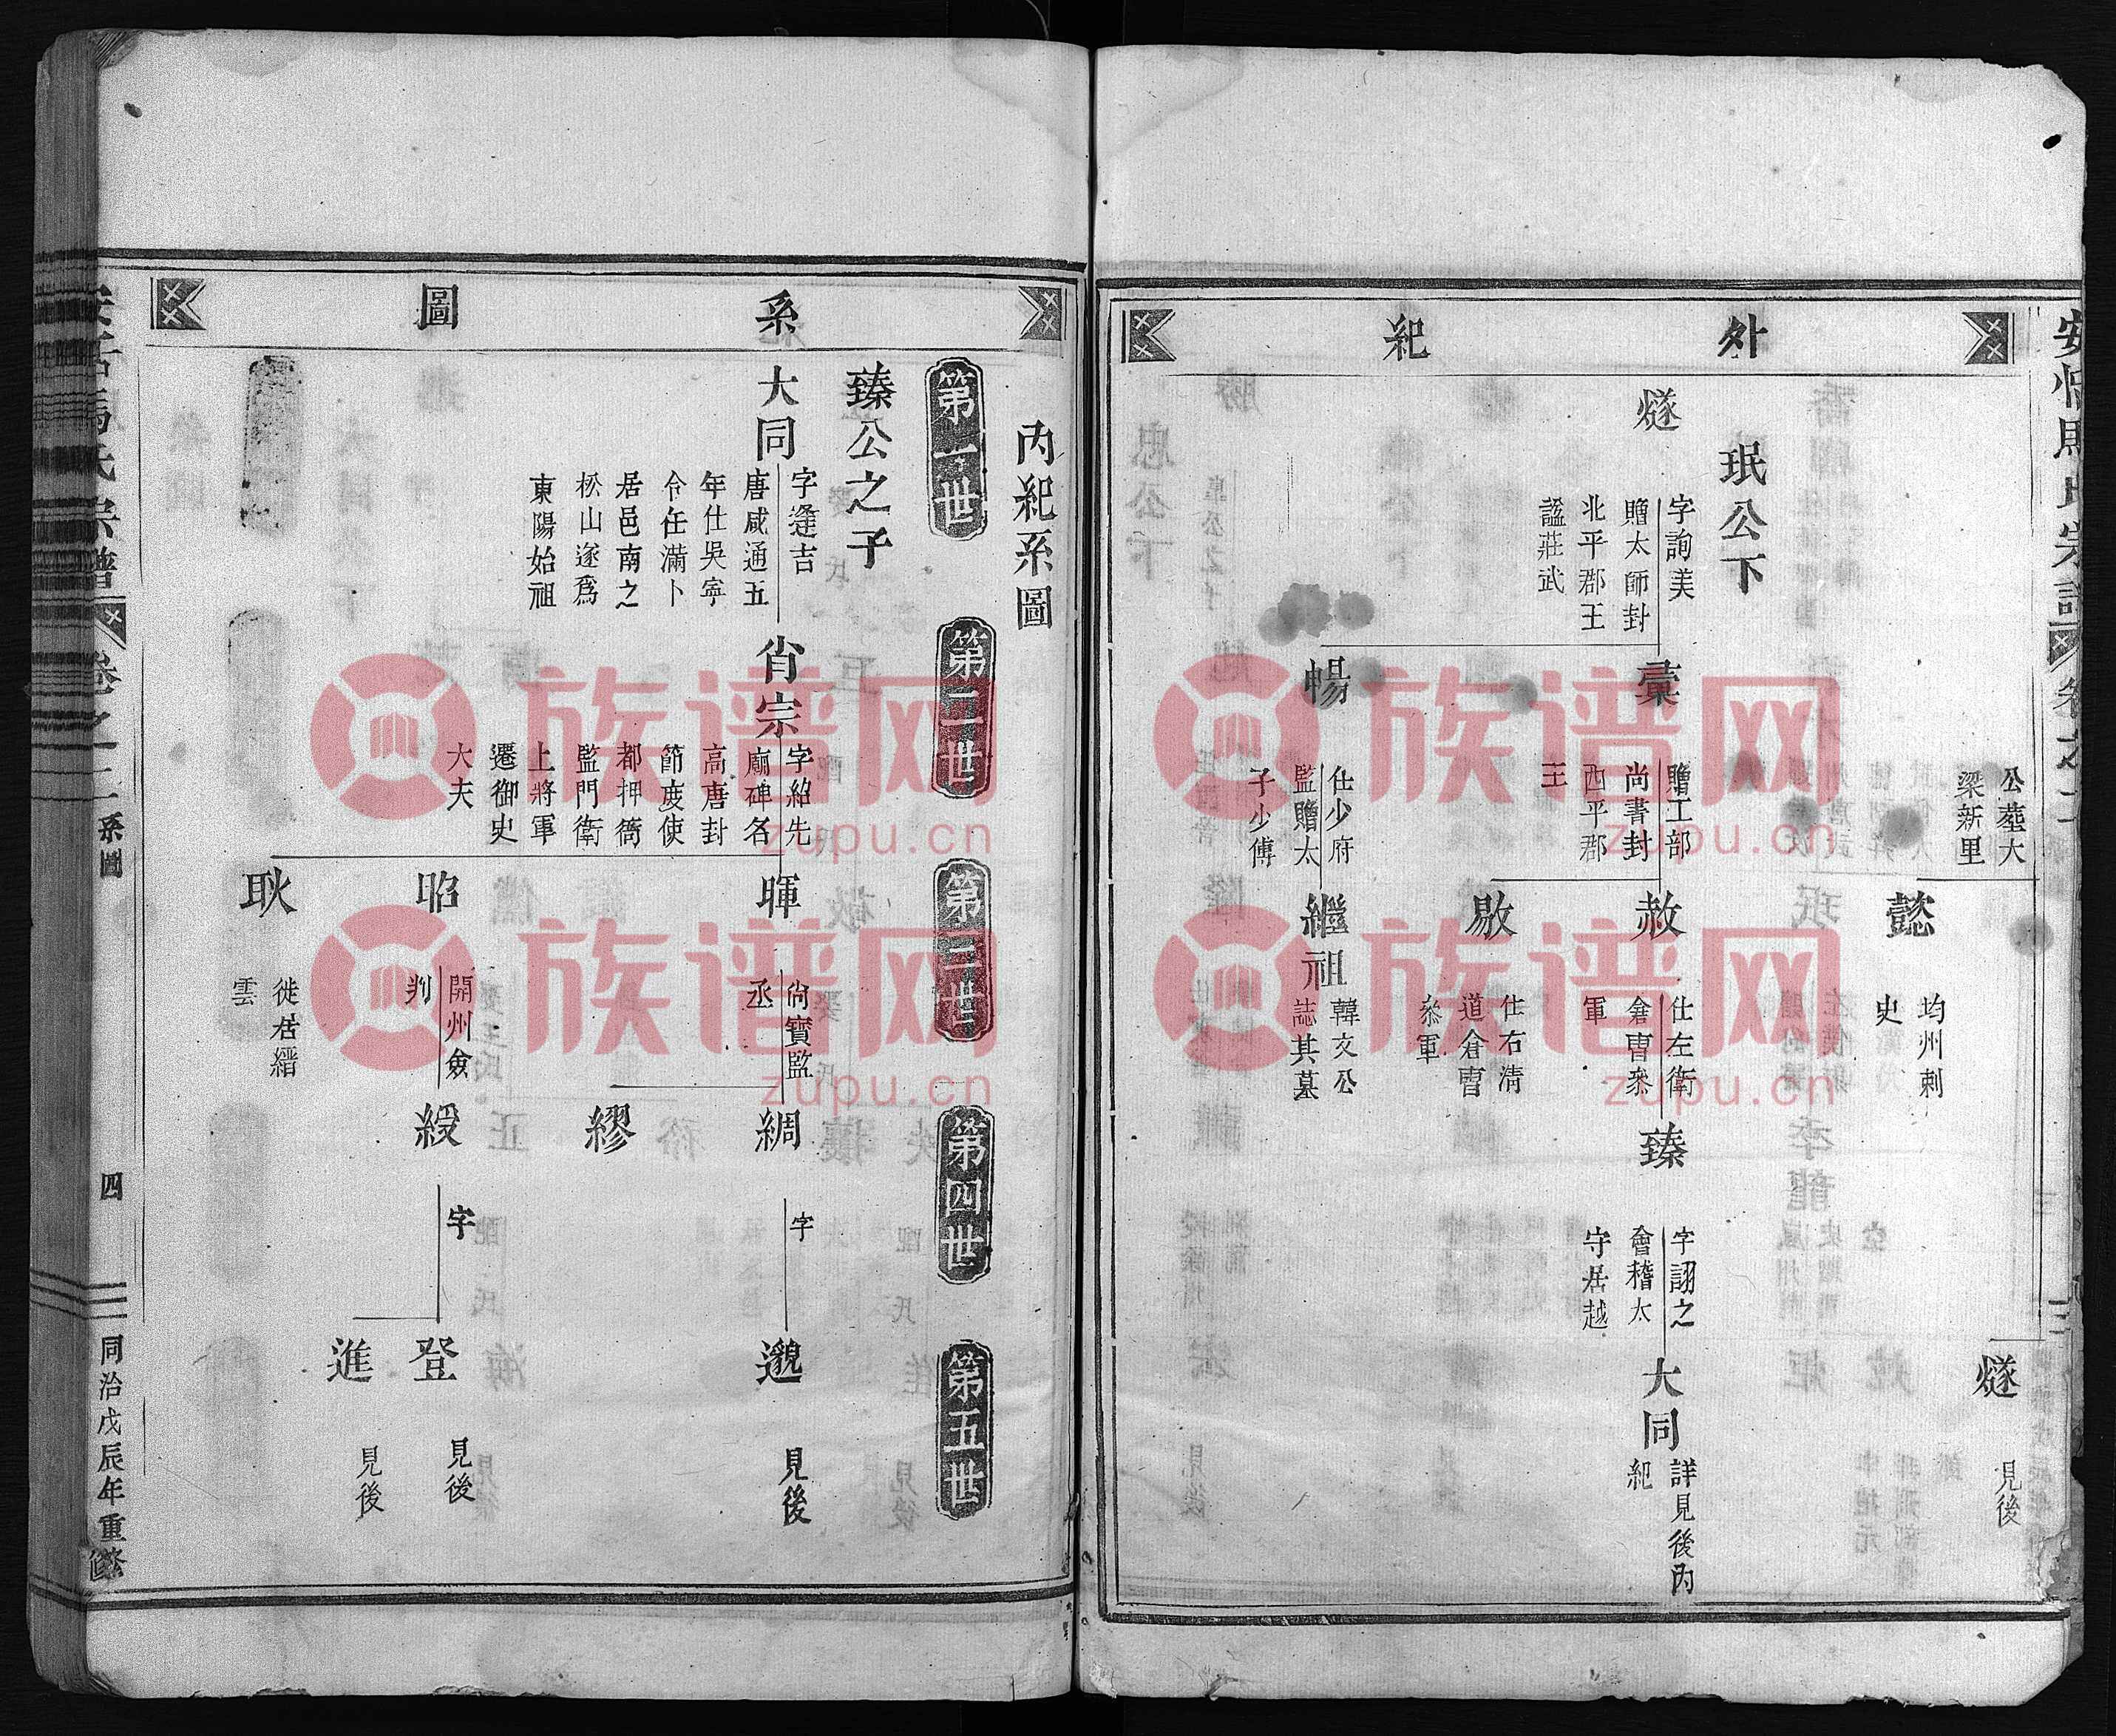 安恬馬氏宗譜
卷之二
外紀
公葬大
梁新里
懿
均州刺
史
燧
見後
珉公下
燧
字詢美
贈太師封
北平郡王
諡莊武
彙
贈工部
尚書封
西平郡
王
暢
仕少府
監贈太
子少傅
赦
仕左衛
倉曹參
軍
敭
仕右清
道倉曹
叅軍
繼祖
韓文公
誌其墓
臻
字詡之
會稽太
守居越
大同
詳見後內
紀
系圖
內紀系圖
第一世
第二世
第三世
第四世
第五世
臻公之子
大同
字逢吉
唐咸通五
年仕吳寧
令任滿卜
居邑南之
松山遂為
東陽始祖
肖宗
字紹先
廟碑名
高唐封
節度使
都押衙
監門衛
上將軍
遷御史
大夫
暉
尚寶監
丞
昭
開州僉
判
耿
徙居縉
雲
綢
字
繆
綬
字
邈
見後
登
見後
進
見後
馬氏宗譜
卷之二
系圖
四
同治戊辰年重修
族谱网
zupu.cn
族谱网
zupu.cn
族谱网
zupu.cn
族谱网
zupu.cn